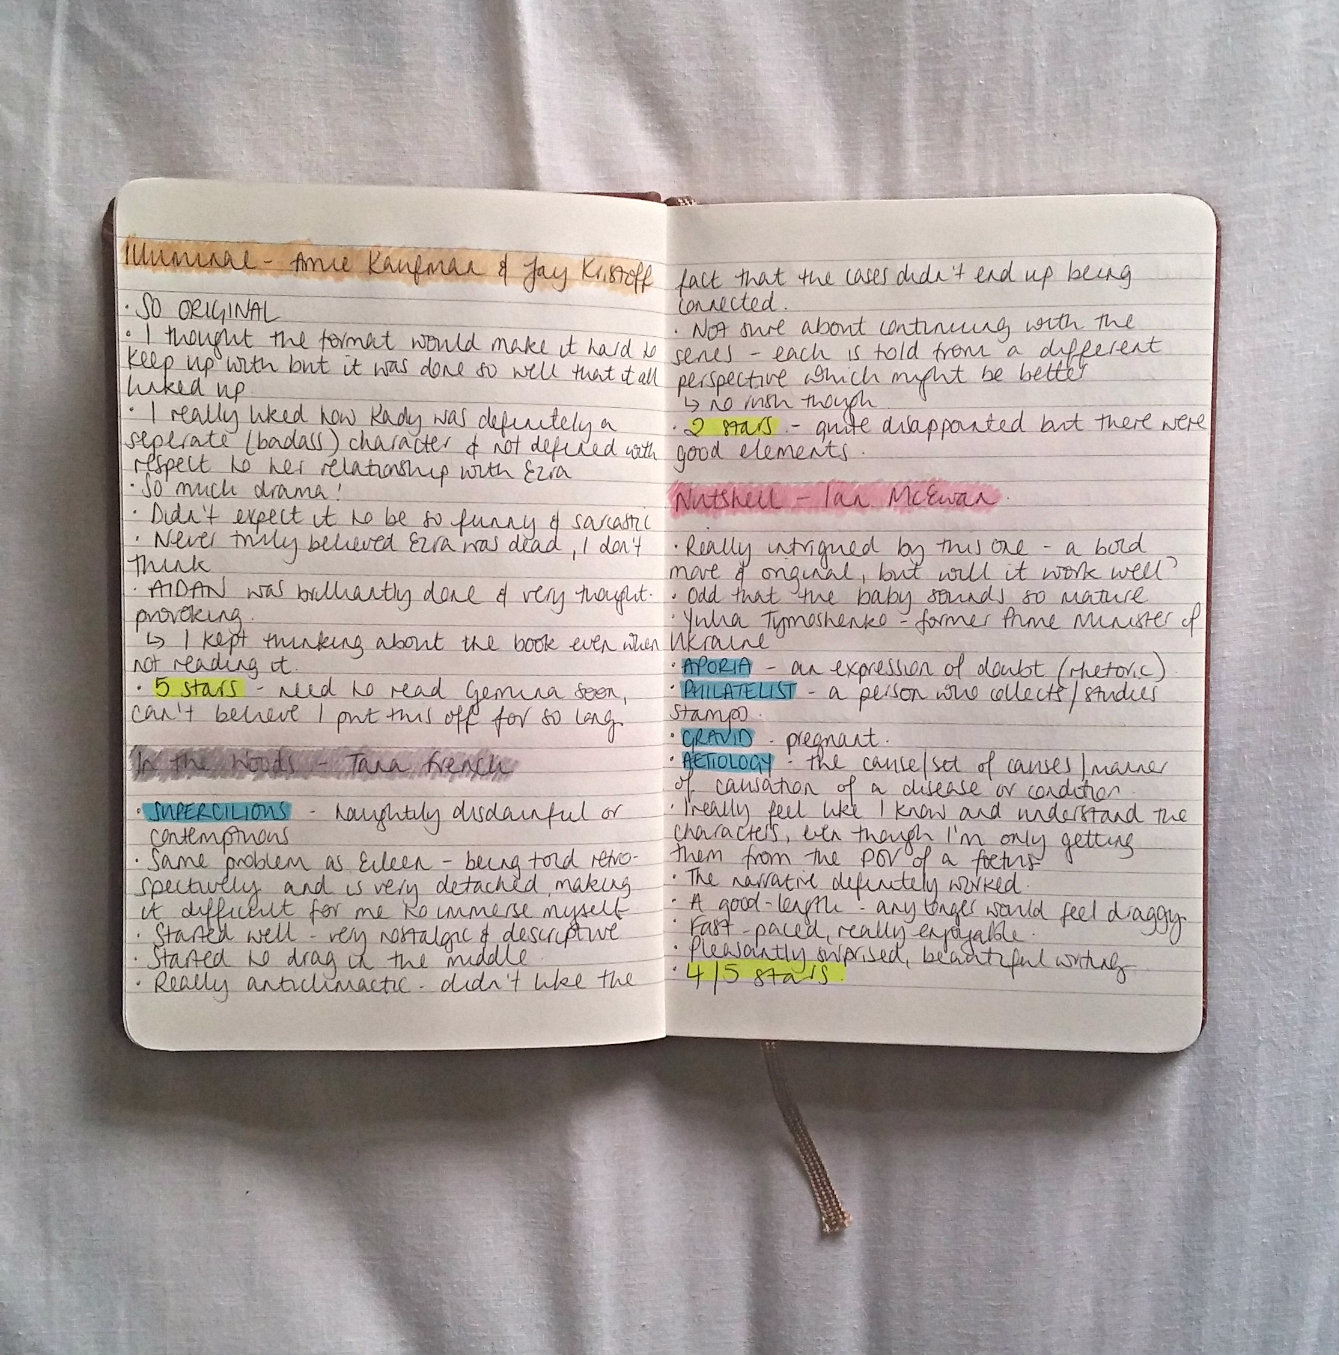 Illuminae - Amie Kaufman & Jay Kristoff
· SO ORIGINAL
· I thought the format would make it hard to
keep up with but it was done so well that it all
linked up.
· I really liked how Kady was definitely a
seperate (badass) character & not defined with
respect to her relationship with Ezra
· So much drama!
· Didn't expect it to be so funny & sarcastic
· Never truly believed Ezra was dead, I don't
think
· AIDAN was brilliantly done & very thought-
provoking.
↳ I kept thinking about the book even when
not reading it.
· 5 stars - need to read Gemina soon,
can't believe I put this off for so long.
In the Woods - Tana French
· SUPERCILIOUS - haughtily disdainful or
contemptuous
· Same problem as Eileen - being told retro-
spectively and is very detached, making
it difficult for me to immerse myself
· Started well - very nostalgic & descriptive
· Started to drag in the middle.
· Really anticlimactic - didn't like the
fact that the cases didn't end up being
connected.
· Not sure about continuing with the
series - each is told from a different
perspective which might be better
↳ no rush though
· 2 stars - quite disappointed but there were
good elements.
Nutshell - Ian McEwan.
· Really intrigued by this one - a bold
move & original, but will it work well?
· Odd that the baby sounds so mature
· Yulia Tymoshenko - former Prime Minister of
Ukraine
· APORIA - an expression of doubt (rhetoric)
· PHILATELIST - a person who collects/studies
stamps.
· GRAVID - pregnant.
· AETIOLOGY - the cause/set of causes/manner
of causation of a disease or condition.
· I really feel like I know and understand the
characters, even though I'm only getting
them from the POV of a foetus
· The narrative definitely worked.
· A good-length - any longer would feel draggy.
· Fast-paced, really enjoyable.
· Pleasantly surprised, beautiful writing
· 4/5 stars.